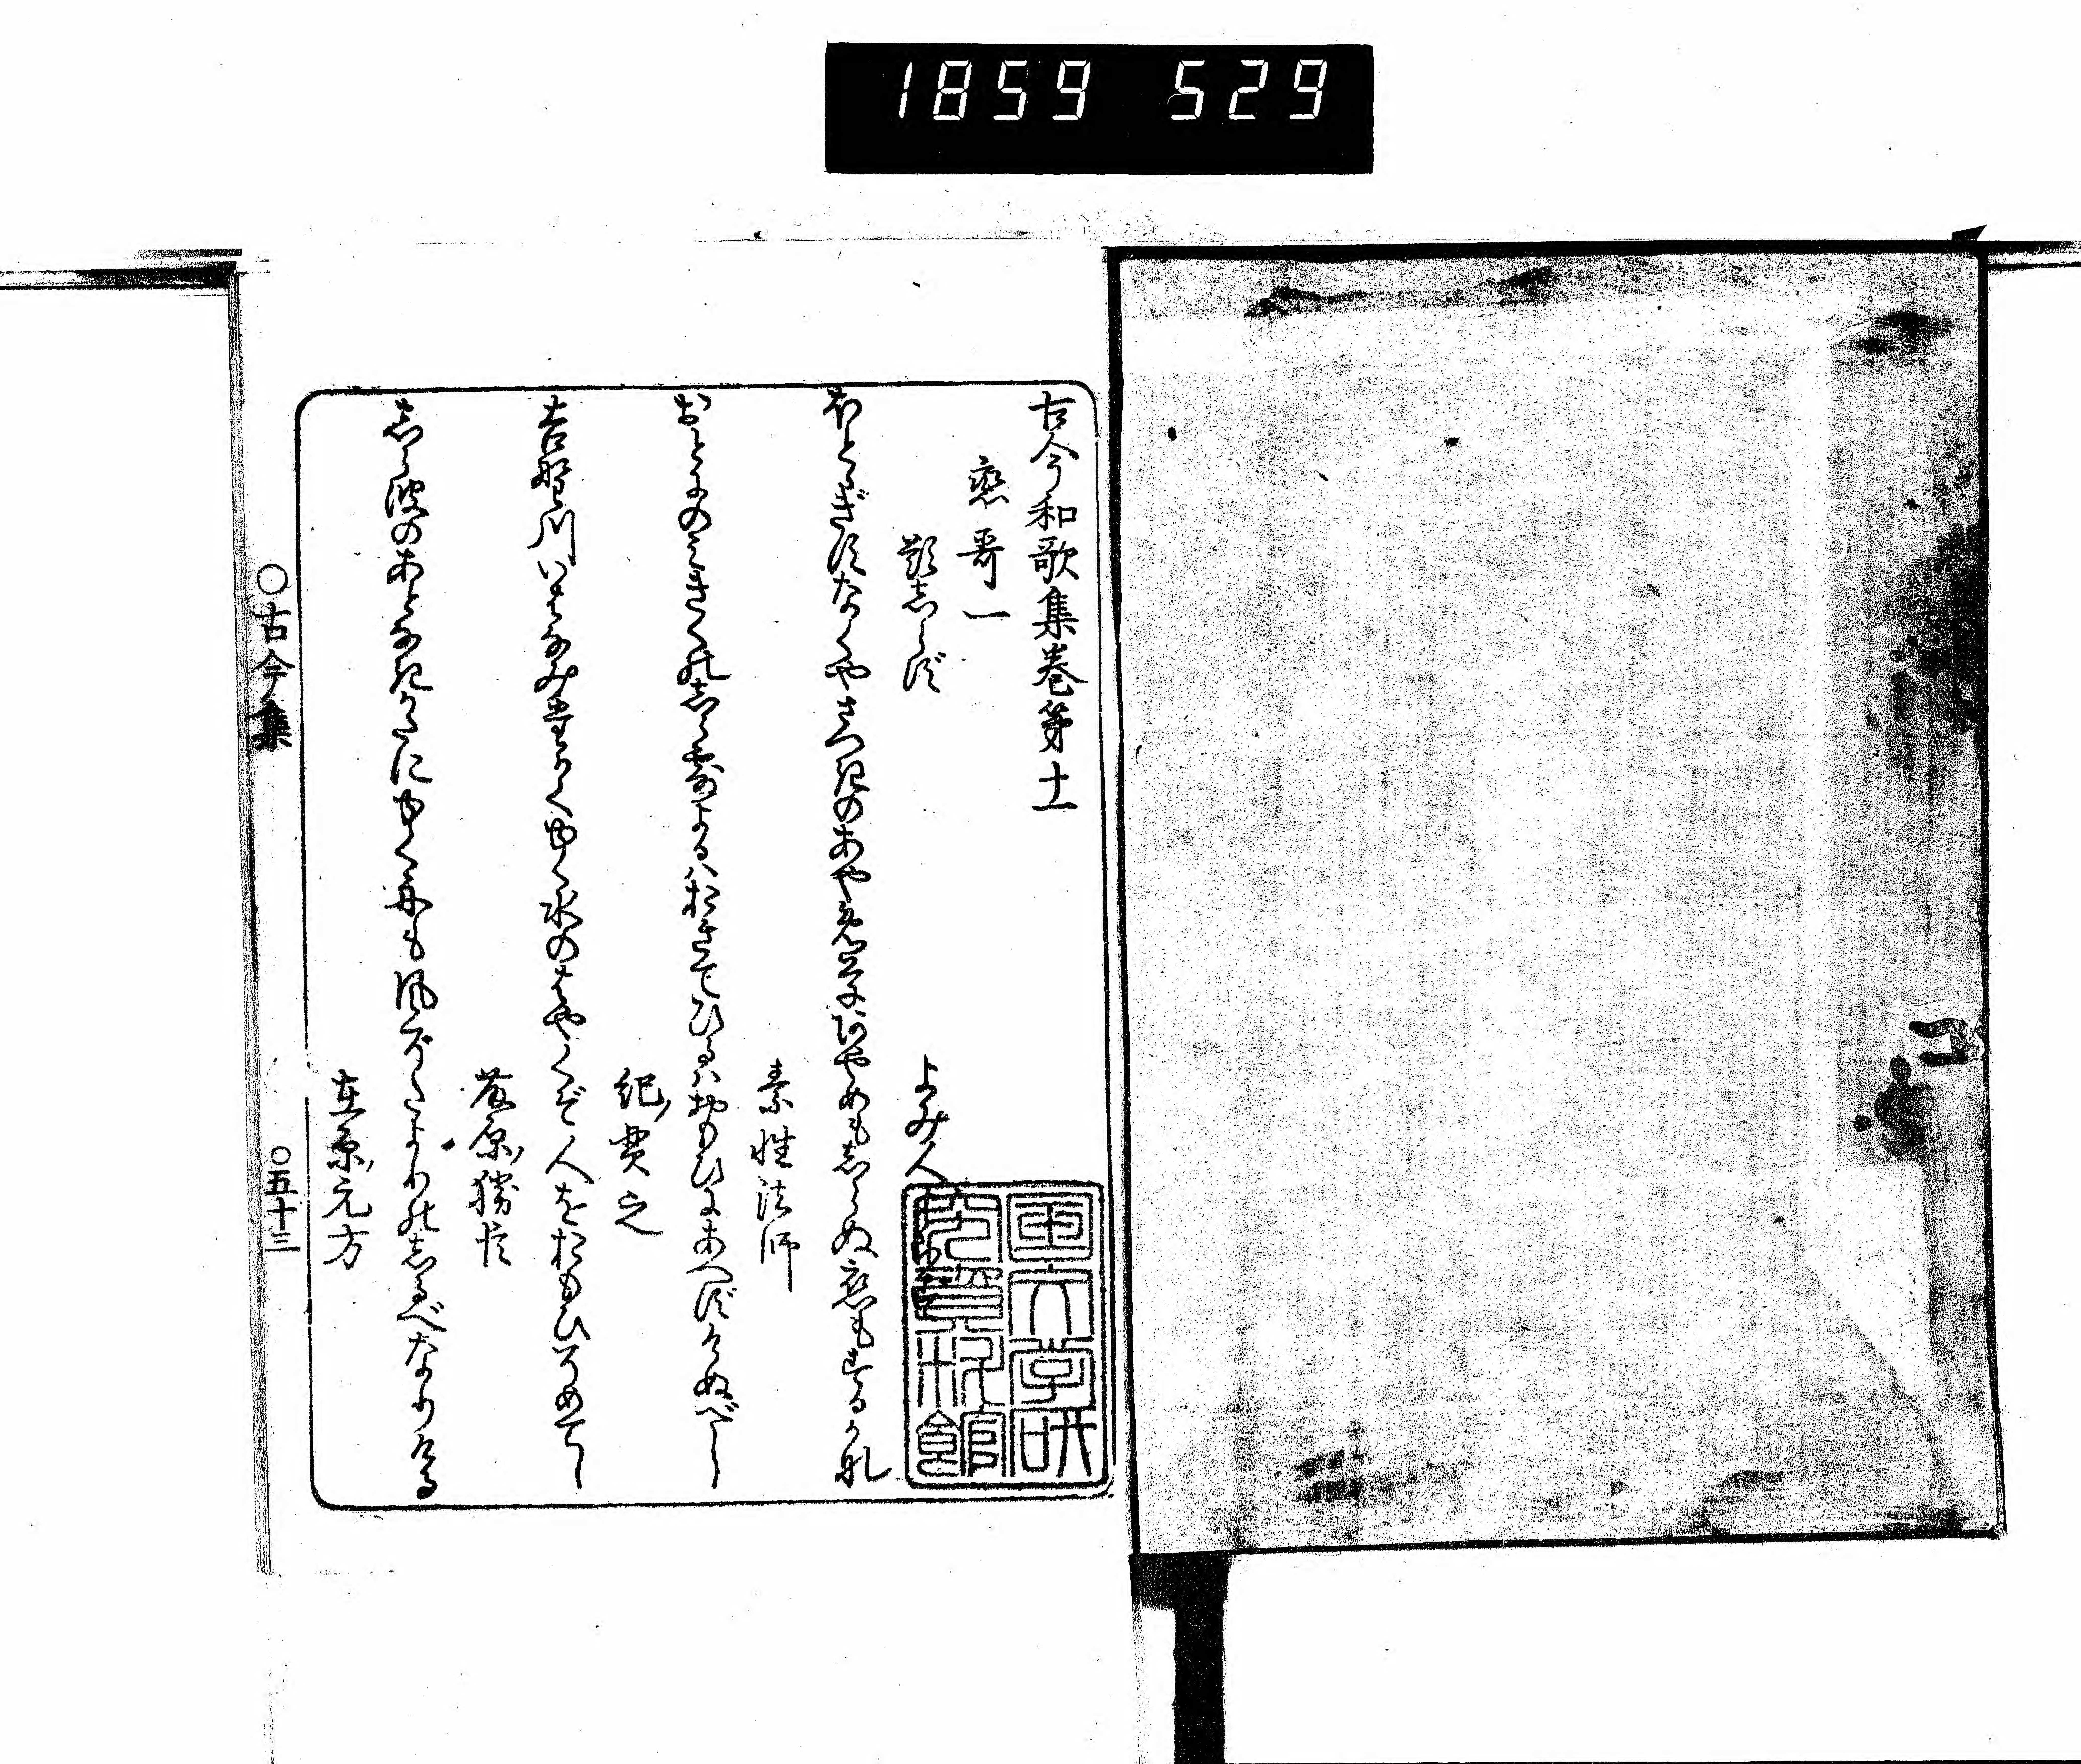 1859 529
古今和歌集巻第十一
戀哥一
題志らず
よみ人
ほとゝぎすなくやさつきのあやめ草あやめも志らぬ戀もするかな
素性法師
おとにのみきくの志ら露よるはおきてひるはおもひにあへずけぬべし
紀貫之
吉野川いはなみ高くゆく水のはやくぞ人をおもひそめてし
藤原勝臣
志ら波のあとなきかたにゆく舟も風ぞたよりの志るべなりける
在原元方
○古今集
○五十三
国文学研
究資料館